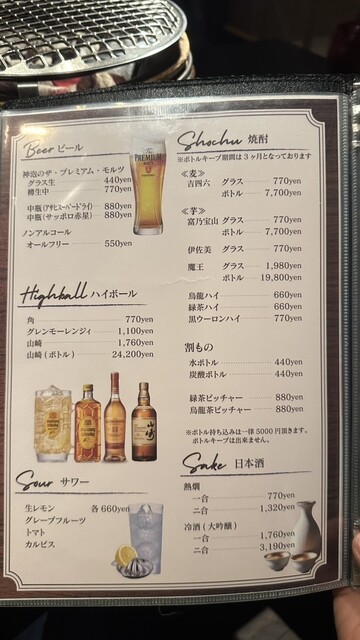 Beer ビール
神泡のザ・プレミアム・モルツ
グラス生 440yen
樽生中 770yen
中瓶(アサヒスーパードライ) 880yen
中瓶(サッポロ赤星) 880yen
ノンアルコール
オールフリー 550yen
The PREMIUM MALT'S
Highball ハイボール
角 770yen
グレンモーレンジィ 1,100yen
山崎 1,760yen
山崎(ボトル) 24,200yen
山崎
Sour サワー
生レモン 各660yen
グレープフルーツ
トマト
カルピス
Shochu 焼酎
※ボトルキープ期間は3ヶ月となっております
≪麦≫
吉四六 グラス 770yen
ボトル 7,700yen
≪芋≫
富乃宝山 グラス 770yen
ボトル 7,700yen
伊佐美 グラス 770yen
魔王 グラス 1,980yen
ボトル 19,800yen
烏龍ハイ 660yen
緑茶ハイ 660yen
黒ウーロンハイ 770yen
割もの
水ボトル 440yen
炭酸ボトル 440yen
緑茶ピッチャー 880yen
烏龍茶ピッチャー 880yen
※ボトル持ち込みは一律5000円頂きます。
ボトルキープは出来ません。
Sake 日本酒
熱燗
一合 770yen
二合 1,320yen
冷酒(大吟醸)
一合 1,760yen
二合 3,190yen